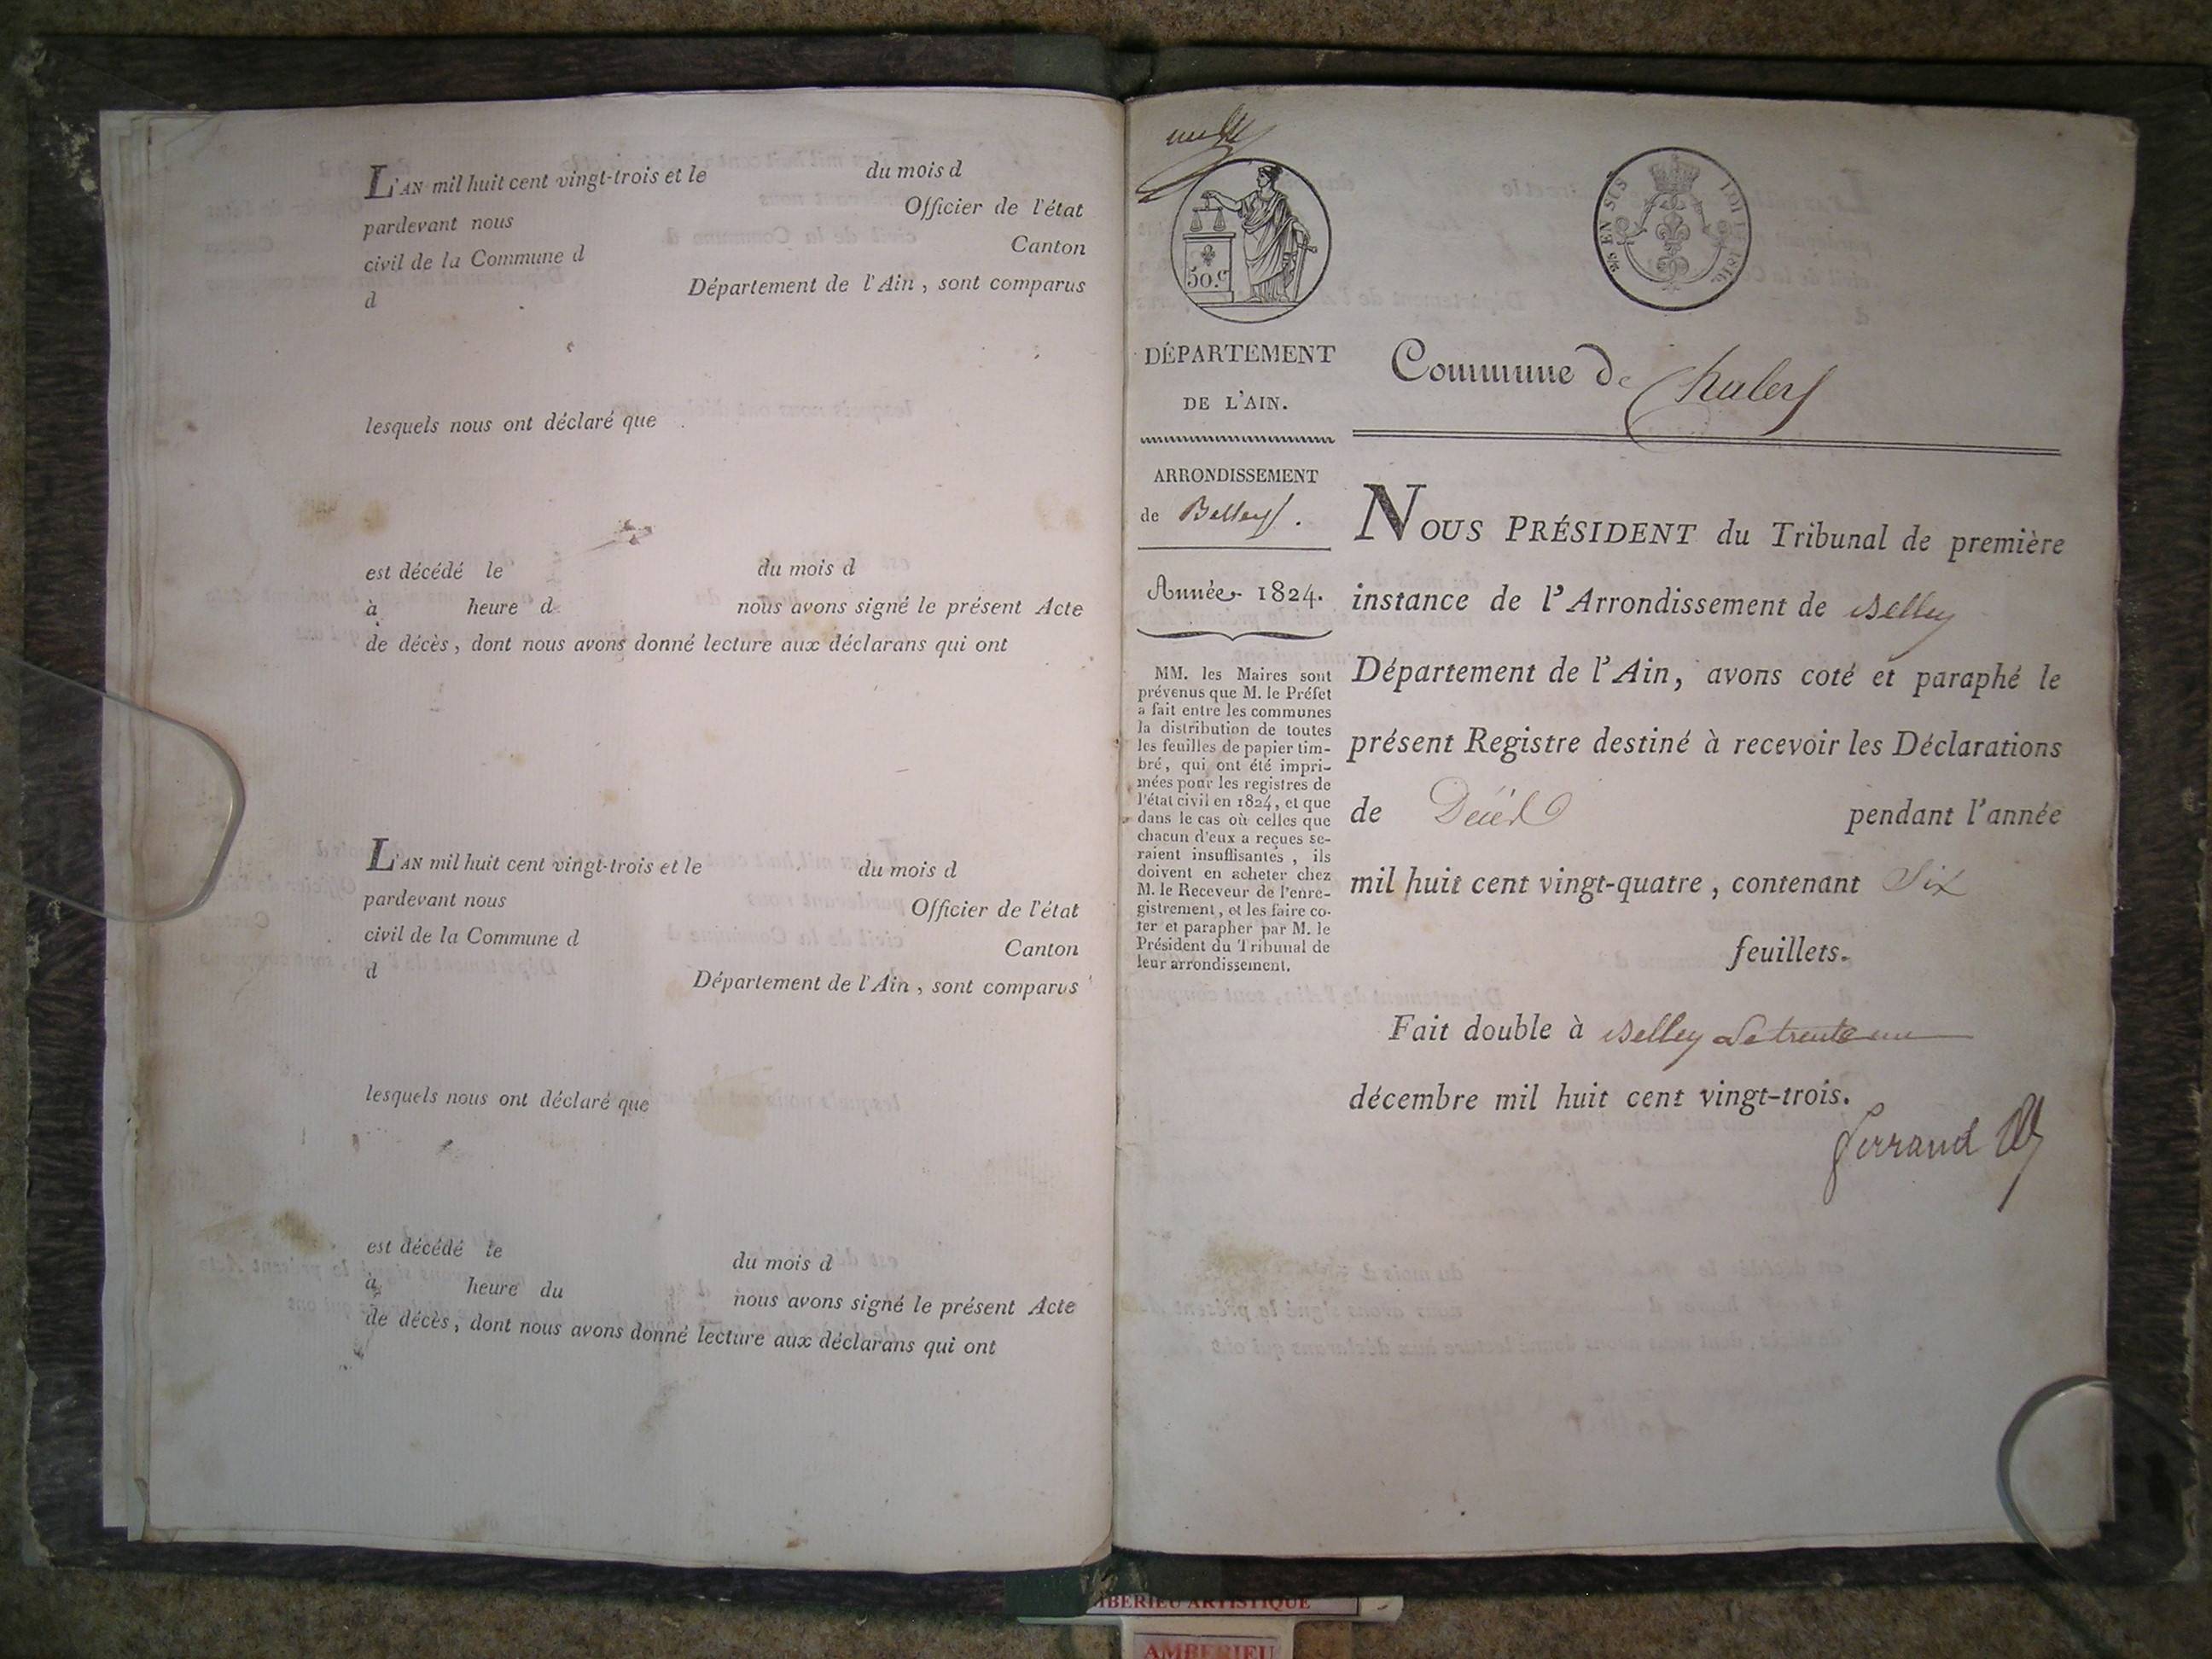 L'AN mil huit cent vingt-trois et le du mois d
pardevant nous Officier de l'état
civil de la Commune d Canton
d Département de l'Ain, sont comparus
lesquels nous ont déclaré que
est décédé le du mois d
à heure d nous avons signé le présent Acte
de décès, dont nous avons donné lecture aux déclarans qui ont
L'AN mil huit cent vingt-trois et le du mois d
pardevant nous Officier de l'état
civil de la Commune d Canton
d Département de l'Ain, sont comparus
lesquels nous ont déclaré que
est décédé le du mois d
à heure du nous avons signé le présent Acte
de décès, dont nous avons donné lecture aux déclarans qui ont
50.c
2/5 EN SUS
DÉPARTEMENT
DE L'AIN.
ARRONDISSEMENT
de Belley.
Année 1824.
MM. les Maires sont
prévenus que M. le Préfet
a fait entre les communes
la distribution de toutes
les feuilles de papier tim-
bré, qui ont été impri-
mées pour les registres de
l'état civil en 1824, et que
dans le cas où celles que
chacun d'eux a reçues se-
raient insuffisantes, ils
doivent en acheter chez
M. le Receveur de l'enre-
gistrement, et les faire co-
ter et parapher par M. le
Président du Tribunal de
leur arrondissement.
Commune de Chaley
NOUS PRÉSIDENT du Tribunal de première
instance de l'Arrondissement de Belley
Département de l'Ain, avons coté et paraphé le
présent Registre destiné à recevoir les Déclarations
de Décès pendant l'année
mil huit cent vingt-quatre, contenant Six
feuillets.
Fait double à Belley Le trente un
décembre mil huit cent vingt-trois.
Ferrand
AMBERIEU ARTISTIQUE
AMBERIEU